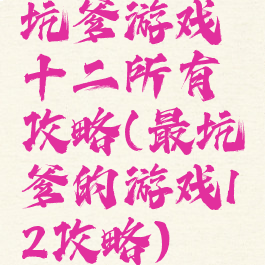 坑爹游戏
十二所有
攻略(最坑
爹的游戏1
2攻略)